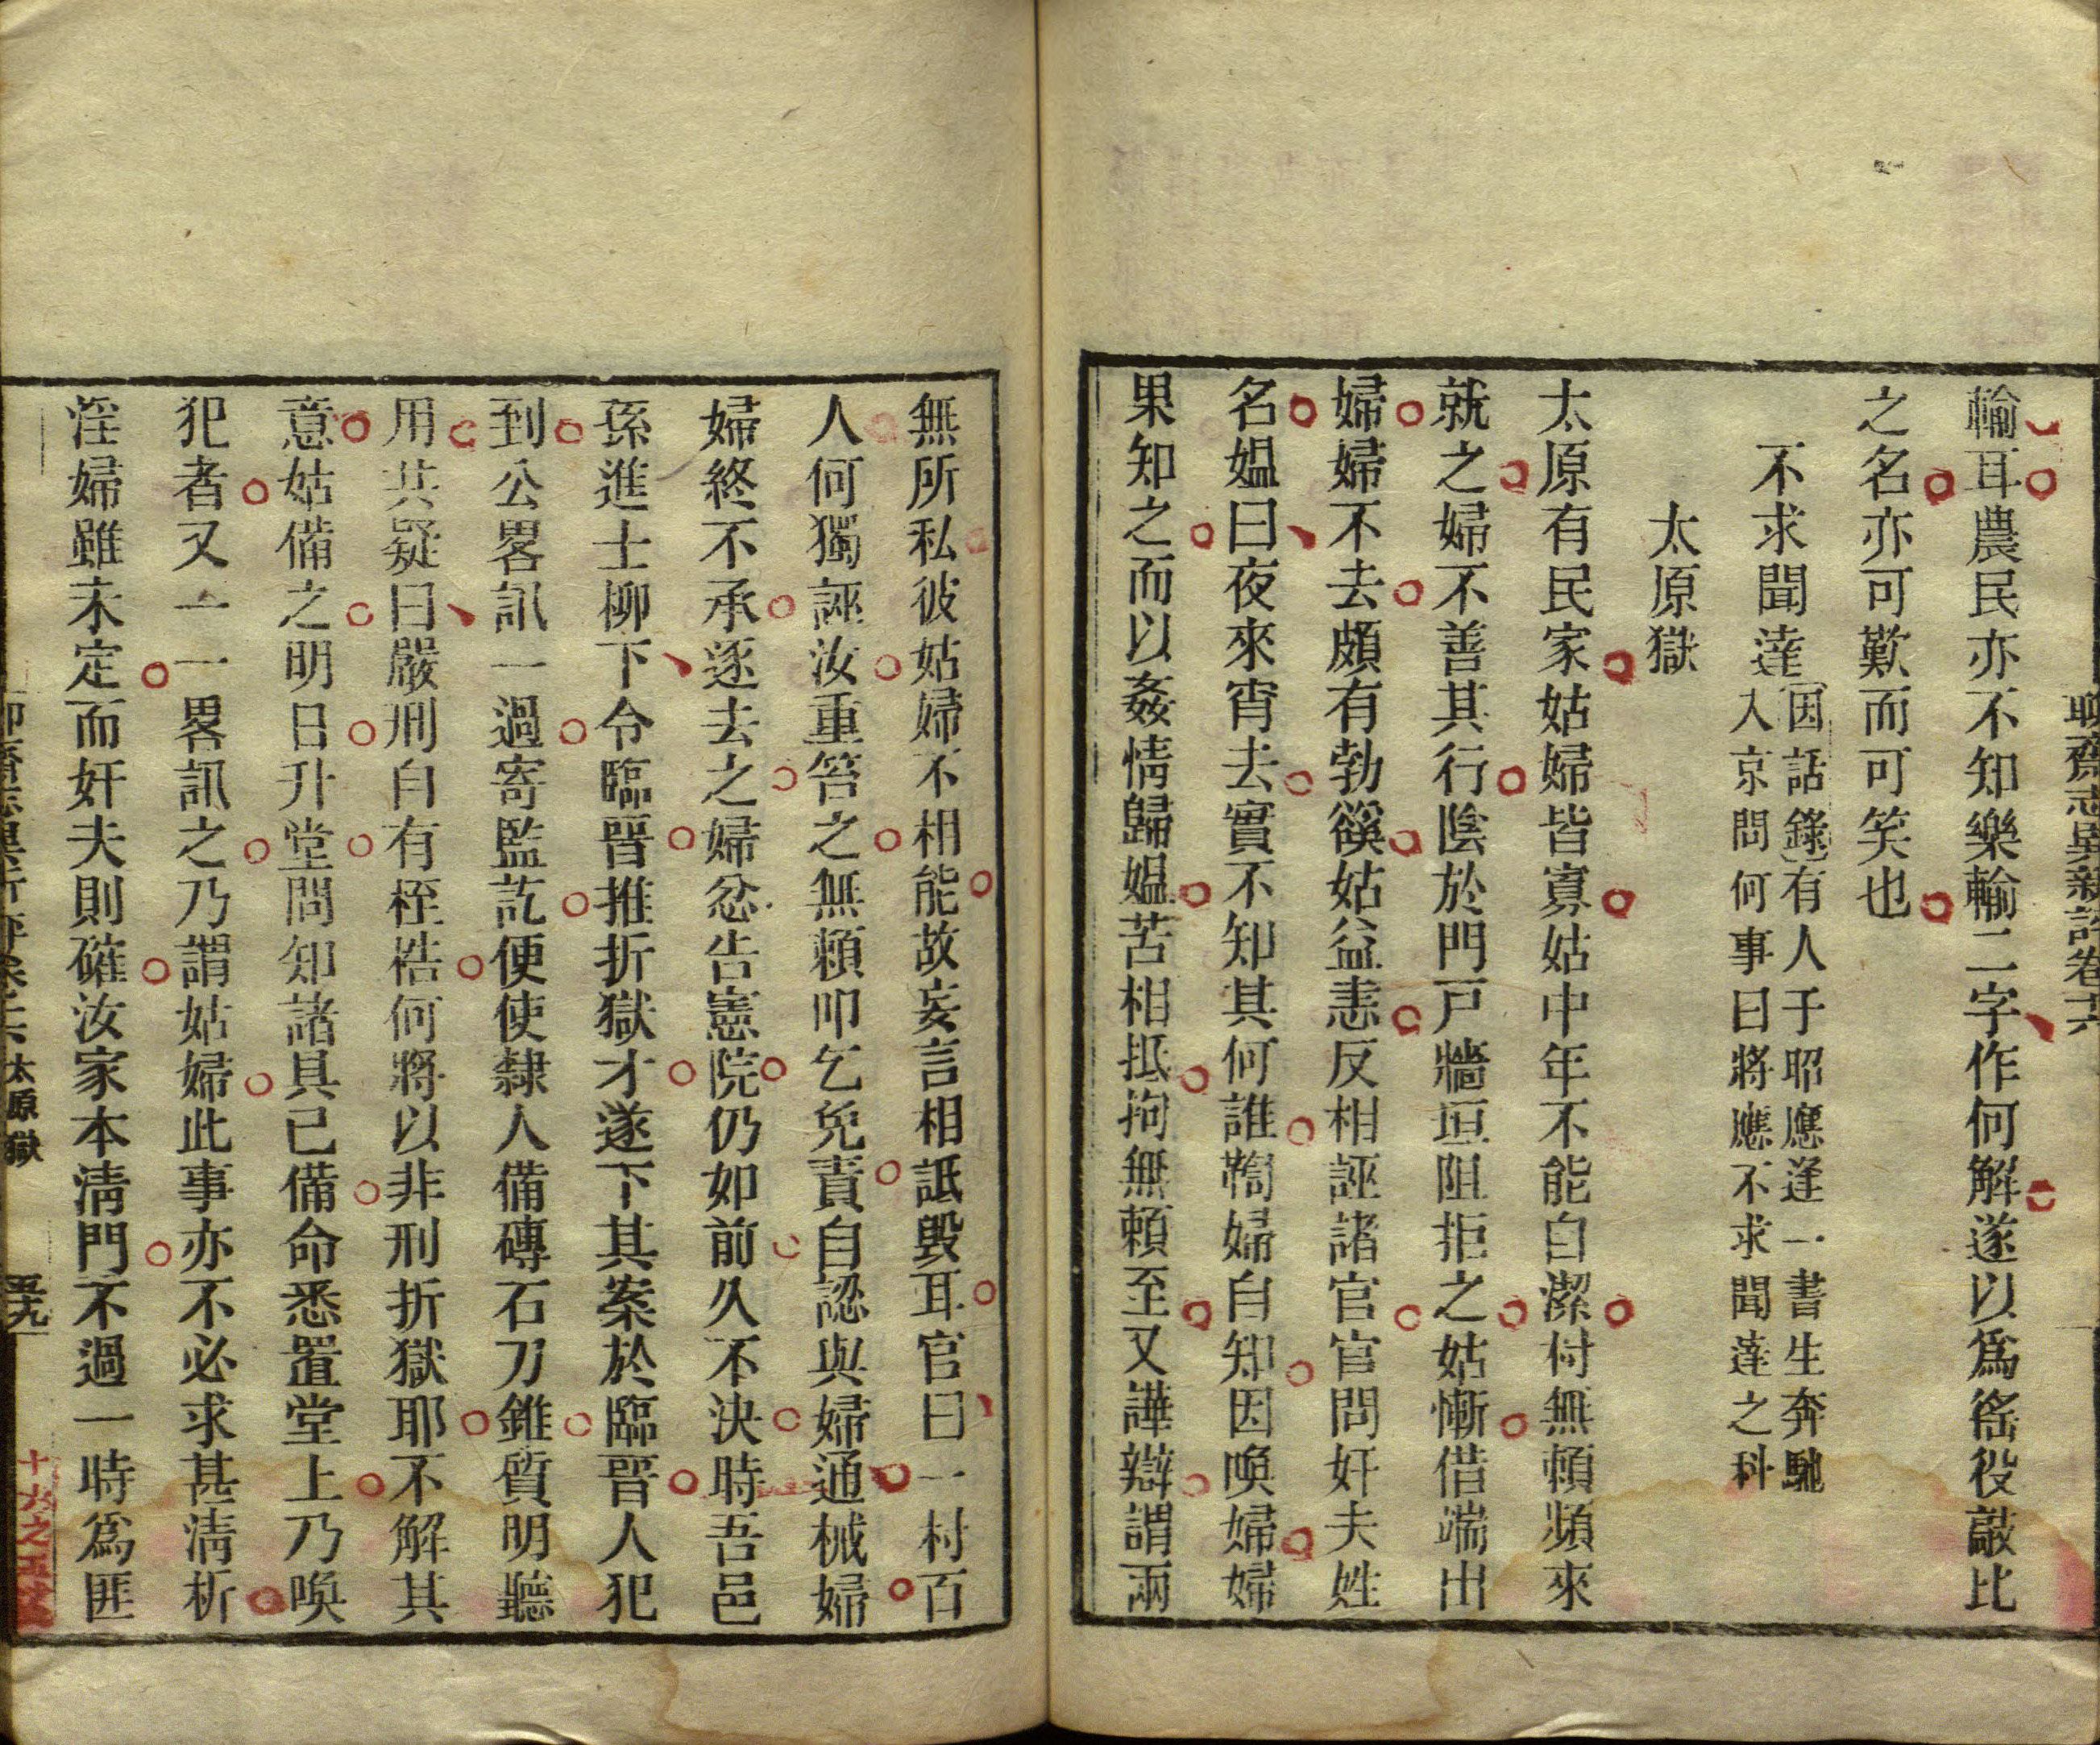 聊齋志異新評卷十六
輸耳農民亦不知樂輸二字作何解遂以爲徭役敲比
之名亦可歎而可笑也
不求聞達
因話錄有人于昭應逢一書生奔馳
入京問何事曰將應不求聞達之科
太原獄
太原有民家姑婦皆寡姑中年不能自潔村無頼頻來
就之婦不善其行陰於門戸牆垣阻拒之姑慚借端出
婦婦不去頗有勃豀姑益恚反相誣諸官官問奸夫姓
名媼曰夜來宵去實不知其何誰鞫婦自知因喚婦婦
果知之而以姦情歸媼苦相抵拘無頼至又譁辯謂兩
無所私彼姑婦不相能故妄言相詆毀耳官曰一村百
人何獨誣汝重笞之無頼叩乞免責自認與婦通械婦
婦終不承逐去之婦忿告憲院仍如前久不決時吾邑
孫進士柳下令臨晉推折獄才遂下其案於臨晉人犯
到公畧訊一過寄監訖便使隸人備磚石刀錐質明聽
用共疑曰嚴刑自有桎梏何將以非刑折獄耶不解其
意姑備之明日升堂問知諸具已備命悉置堂上乃喚
犯者又一一畧訊之乃謂姑婦此事亦不必求甚清析
淫婦雖未定而奸夫則確汝家本清門不過一時爲匪
太原獄
五十九